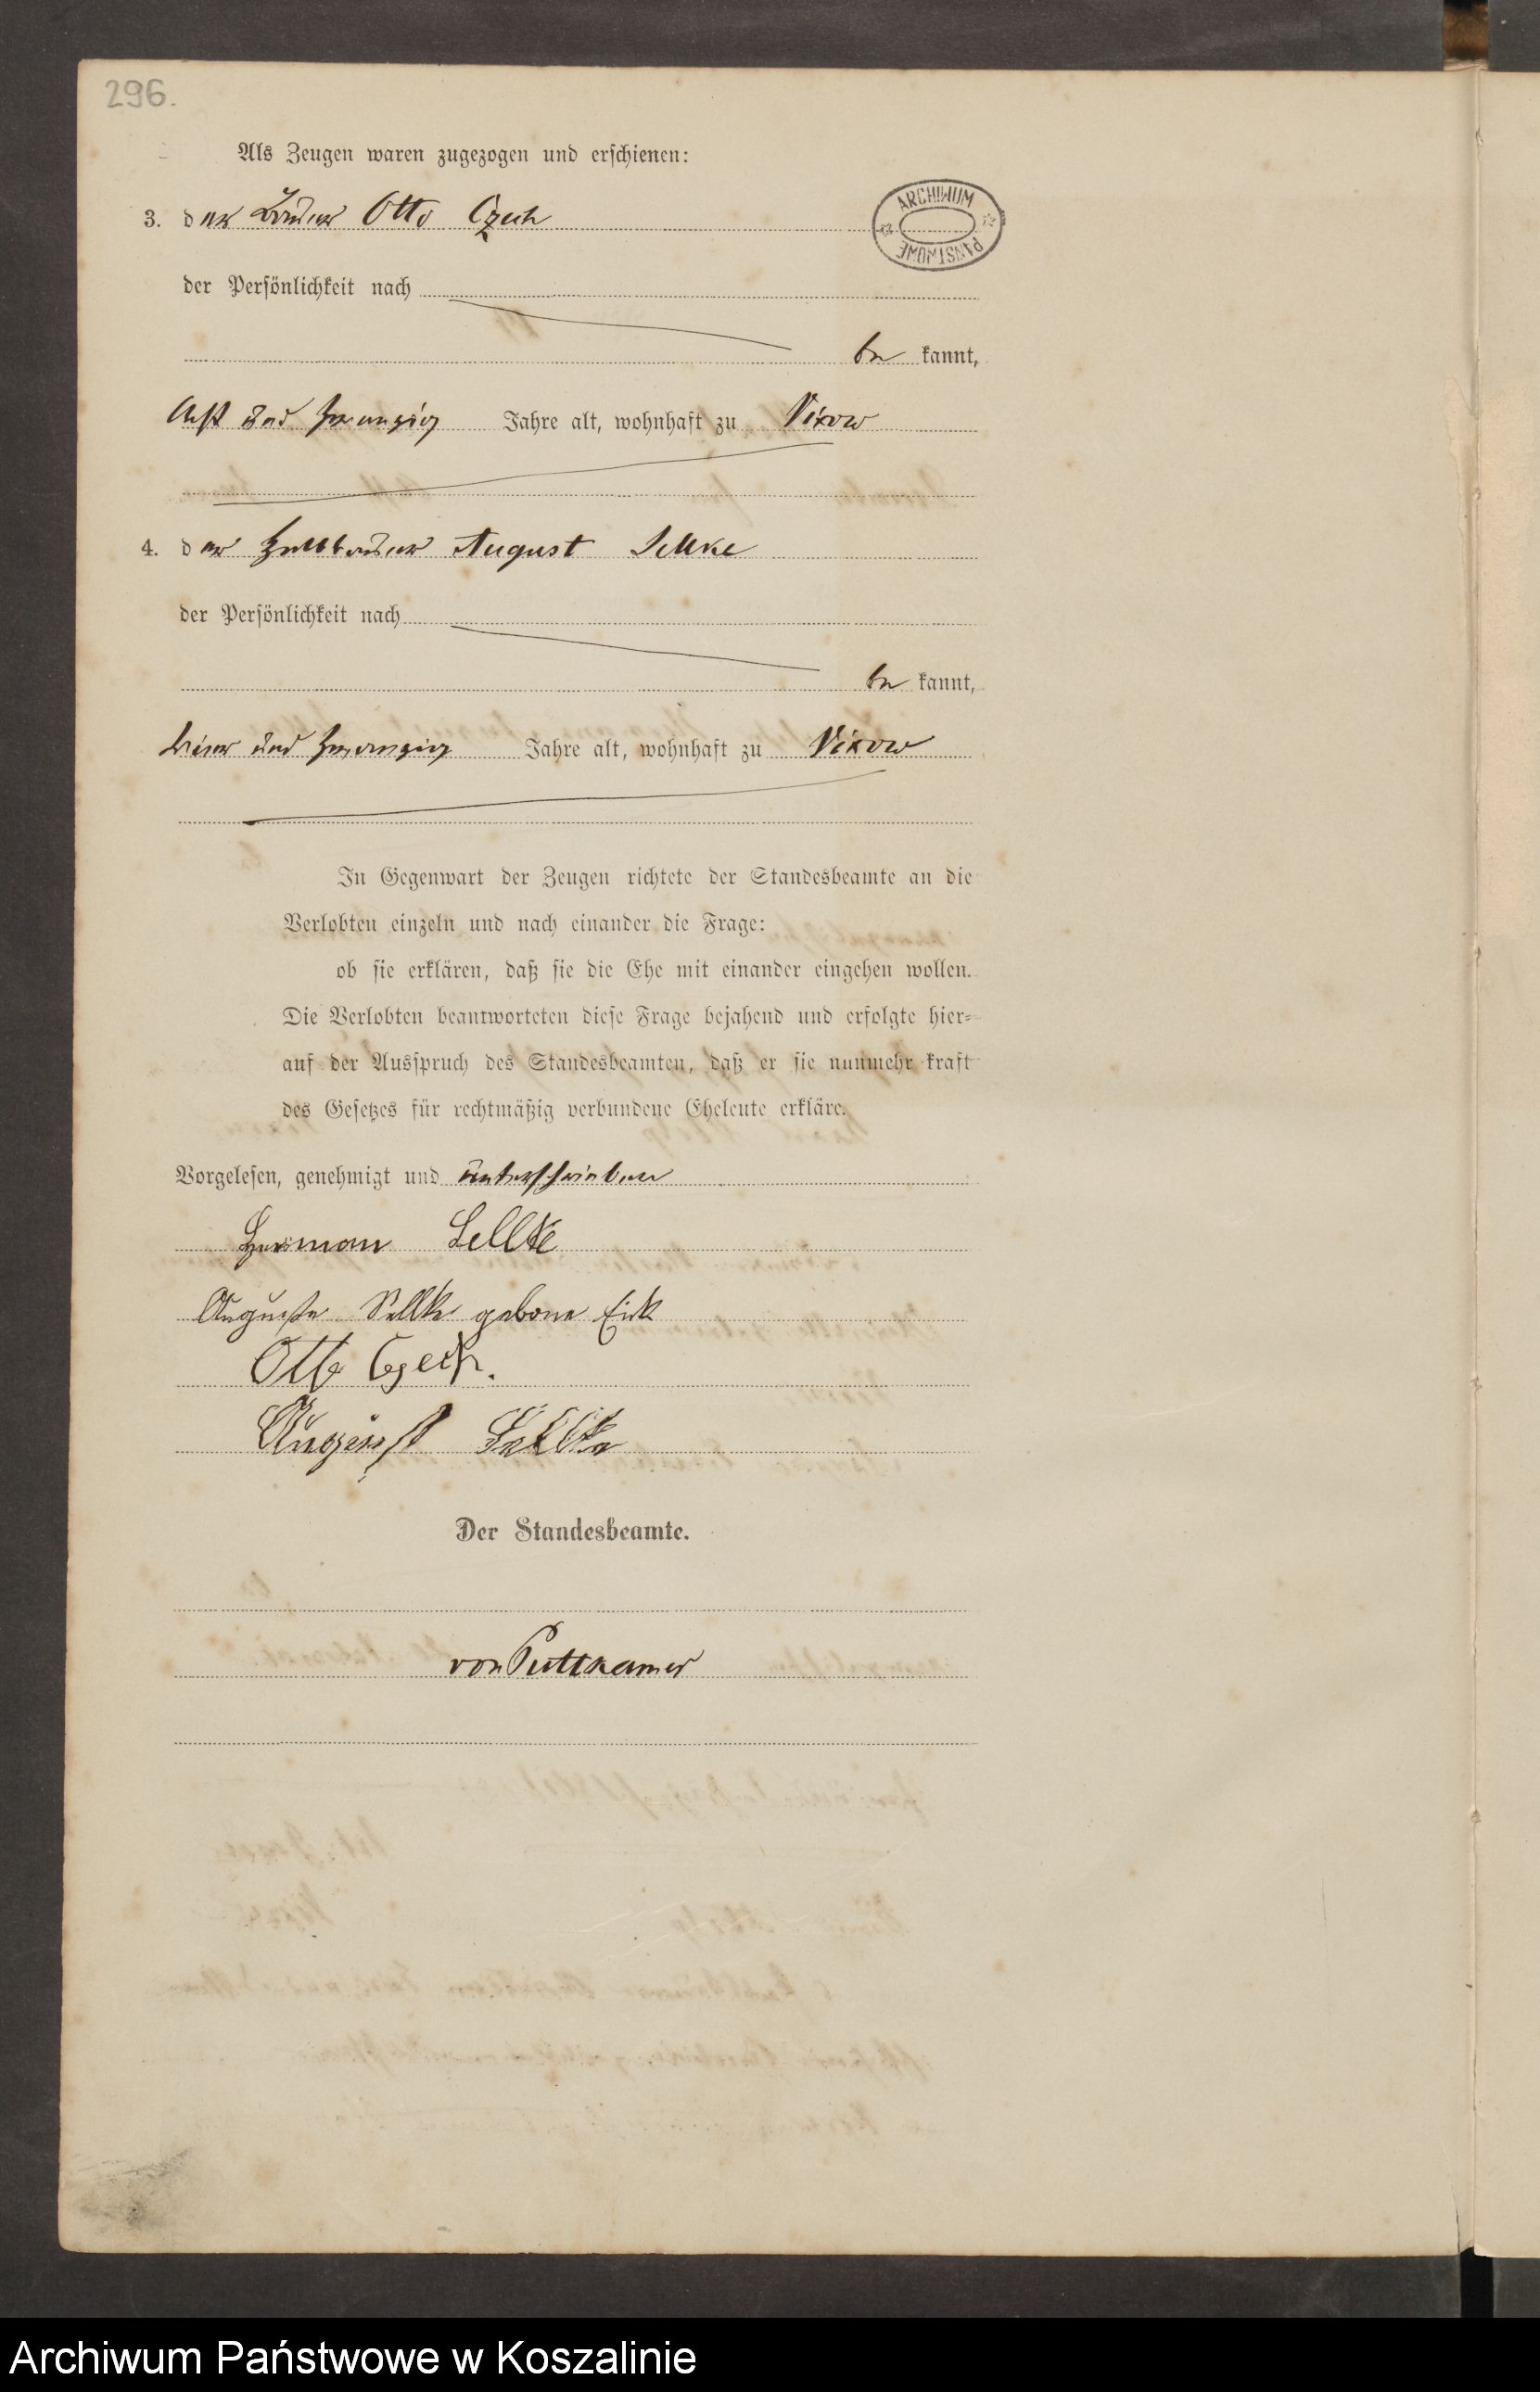 296.
Als Zeugen waren zugezogen und erschienen:
ARCHIWUM PAŃSTWOWE
3. der Bauer Otto Czech
der Persönlichkeit nach
be kannt,
Acht und zwanzig Jahre alt, wohnhaft zu Vixow
4. der Halbbauer August Sellke
der Persönlichkeit nach
be kannt,
und zwanzig Jahre alt, wohnhaft zu Vixow
In Gegenwart der Zeugen richtete der Standesbeamte an die
Verlobten einzeln und nach einander die Frage:
ob sie erklären, daß sie die Ehe mit einander eingehen wollen.
Die Verlobten beantworteten diese Frage bejahend und erfolgte hier=
auf der Ausspruch des Standesbeamten, daß er sie nunmehr kraft
des Gesetzes für rechtmäßig verbundene Eheleute erkläre.
Vorgelesen, genehmigt und unterschrieben
Herman Sellke
Auguste Sellke gebone
Otto Czech.
August Sellke
Der Standesbeamte.
von Puttkamer
Archiwum Państwowe w Koszalinie